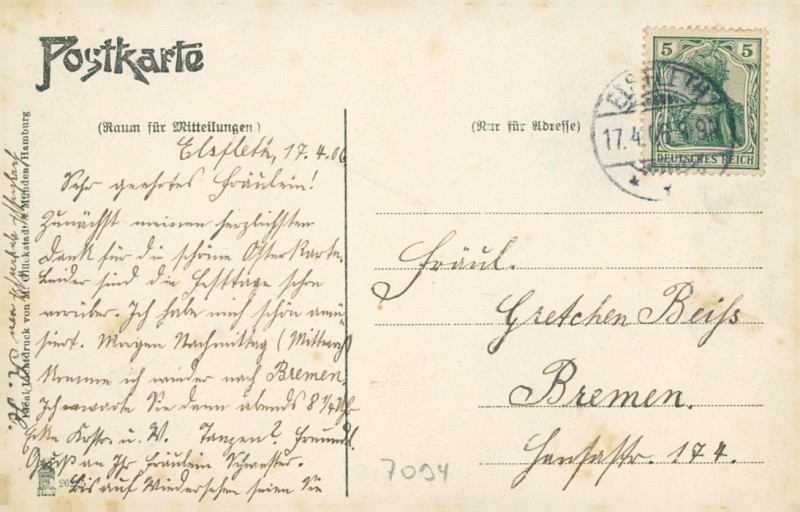 Postkarte
(Raum für Mitteilungen)
(Nur für Adresse)
5 5
DEUTSCHES REICH
ELSFLETH
17.4.06
Elsfleth, 17.4.06
Sehr geehrtes Fräulein!
Zunächst meinen herzlichsten
Dank für die schöne Osterkarte.
Leider sind die Festtage schon
vorüber. Ich habe mich schön amü
siert. Morgen Nachmittag (Mittwoch)
komme ich wieder nach Bremen.
Ich erwarte Sie dann abends 8 1/4 Uhr
Ecke u. W. Tanzen? Freundl.
Gruß an Ihr Fräulein Schwester.
Bis auf Wiedersehen seien Sie
Fräul.
Gretchen Beiss
Bremen.
Hansastr. 174.
7094
Lichtdruck von M. Glückstadt & Münden, Hamburg